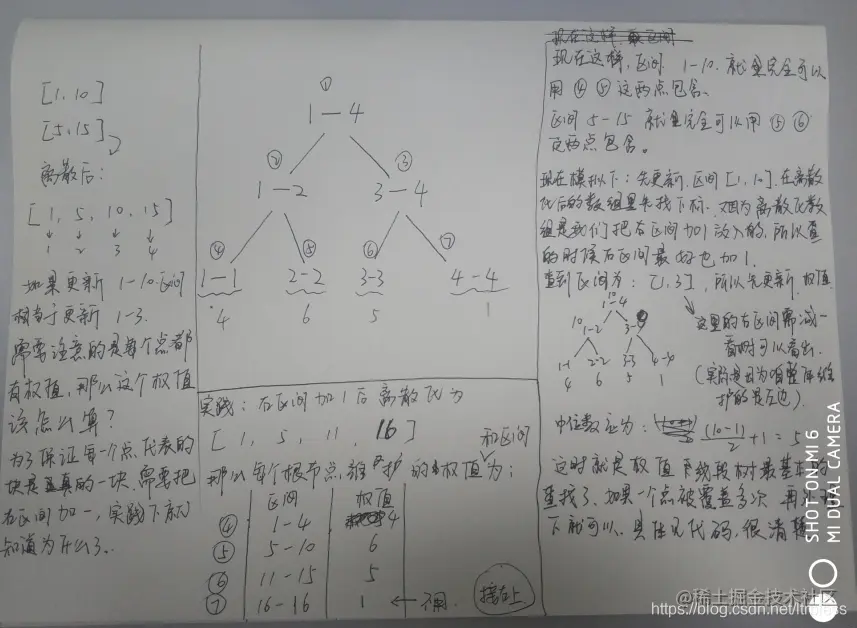 [1, 10]
[5, 15]
离散后:
[1, 5, 10, 15]
1 2 3 4
如果更新 1-10区间
相当于更新 1-3.
需要注意的是每个点都
有权值,那么这个权值
该怎么算?
为了保证每一个点代表的
块是真的一块,需要把
右区间加一,实践下就
知道为什么了.
①
1-4
② ③
1-2 3-4
④ ⑤ ⑥ ⑦
1-1 2-2 3-3 4-4
4 6 5 1
实践:右区间加1后离散化为
[1, 5, 11, 16] 和区间
那么每个根节点维护的权值为:
区间 权值
④ 1-4 4
⑤ 5-10 6
⑥ 11-15 5
⑦ 16-16 1 ← 不用.
接右上
现在这样,区间 1-10.就完全可以
用 ④ ⑤ 这两点包含.
区间 5-15 就完全可以用 ⑤ ⑥
这两点包含。
现在模拟下:先更新区间[1,10],在离散
化后的数组里先找下标.因为离散化数
组是我们把右区间加1放入的,所以查
的时候右区间最好也加1.
查到区间为:[1,3],所以先更新 权值
10
1-4
10
1-2 3-
1-1 2-2 3-3 4-4
4 6 5 1
这里的右区间需减一
看树可以看出.
(实际是因为咱整体维
护的是左边).
中位数应为: (10-1)/2 + 1 = 5
这时就是权值下线段树最基本的
查找了.如果一个点被覆盖多次 再
下就可以.具体见代码,很清楚
SHOT ON MI 6
MI DUAL CAMERA
@稀土掘金技术社区